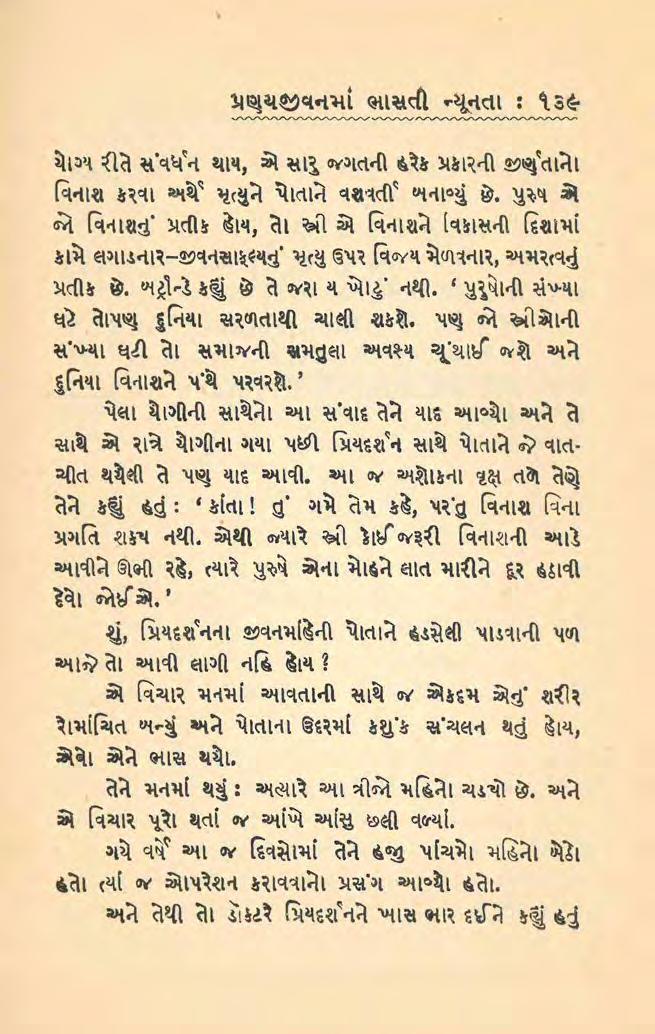 પ્રણયજીવનમાં ભાસતી ન્યૂનતા : ૧૩૯
યોગ્ય રીતે સંવર્ધન થાય, એ સારુ જગતની હરેક પ્રકારની જીર્ણતાનો
વિનાશ કરવા અર્થે મૃત્યુને પોતાને વશવર્તી બનાવ્યું છે. પુરુષ એ
જો વિનાશનું પ્રતીક હોય, તો સ્ત્રી એ વિનાશને વિકાસની દિશામાં
કામે લગાડનાર–જીવનસાફલ્યનું મૃત્યુ ઉપર વિજય મેળવનાર, અમરત્વનું
પ્રતીક છે. બર્ટ્રાન્ડે કહ્યું છે તે જરા ય ખોટું નથી. ‘ પુરુષોની સંખ્યા
ઘટે તોપણ દુનિયા સરળતાથી ચાલી શકશે. પણ જો સ્ત્રીઓની
સંખ્યા ઘટી તો સમાજની સમતુલા અવશ્ય ચૂંથાઈ જશે અને
દુનિયા વિનાશને પંથે પરવરશે.’
પેલા યોગીની સાથેનો આ સંવાદ તેને યાદ આવ્યો અને તે
સાથે એ રાત્રે યોગીના ગયા પછી પ્રિયદર્શન સાથે પોતાને જે વાત-
ચીત થયેલી તે પણ યાદ આવી. આ જ અશોકના વૃક્ષ તળે તેણે
તેને કહ્યું હતું : ‘ કાંતા! તું ગમે તેમ કહે, પરંતુ વિનાશ વિના
પ્રગતિ શક્ય નથી. એથી જ્યારે સ્ત્રી કોઈ જરૂરી વિનાશની આડે
આવીને ઊભી રહે, ત્યારે પુરુષે એના મોહને લાત મારીને દૂર હઠાવી
દેવો જોઈએ.’
શું, પ્રિયદર્શનના જીવનમાંહેની પોતાને હડસેલી પાડવાની પળ
આજે તો આવી લાગી નહિ હોય ?
એ વિચાર મનમાં આવતાની સાથે જ એકદમ એનું શરીર
રોમાંચિત બન્યું અને પોતાના ઉદરમાં કશુંક સંચલન થતું હોય,
એવો એને ભાસ થયો.
તેને મનમાં થયું : અત્યારે આ ત્રીજો મહિનો ચડયો છે. અને
એ વિચાર પૂરો થતાં જ આંખે આંસુ છલી વળ્યાં.
ગયે વર્ષે આ જ દિવસોમાં તેને હજી પાંચમો મહિનો બેઠો
હતો ત્યાં જ ઓપરેશન કરાવવાનો પ્રસંગ આવ્યો હતો.
અને તેથી તો ડૉક્ટરે પ્રિયદર્શનને ખાસ ભાર દઈને કહ્યું હતું